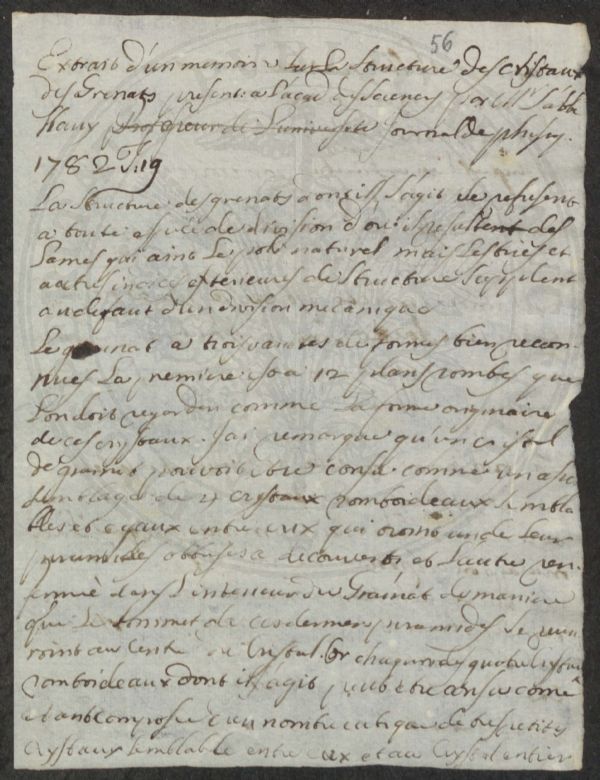 56
Extrait d'un memoire sur la Structure des cristaux
des Grenats present: a l'acad des sciences par Mr l'abbé
Hauy professeur de l'université Journal de physiq.
1782 T. 19
La structure des grenats dont il s'agit se refusent
a toute espece de division d'ou il resultent des
lames qui aint le poli naturel mais les stries et
autres indices exterieures de structure supplent
au defaut d'un division mecanique
Le grenat a trois varietes de formes bien recon-
nues La premiere est a 12 plans rombes que
l'on doit regarder comme la forme originaire
de ces crystaux. J'ai remarqué qu'un cristal
de grenat pouvoit etre consd. comme un ass
emblage de 4 crystaux romboideaux sembla
bles et egaux entre eux qui oront un de leur
piramides obtuses a decouverts et l'autre ren-
fermé dans l'interieur du Grainat de maniere
que le sommet de ces dernier piramides se reun
roint au centre du Cristal. Or chaqun des quatre cristaux
romboideaux dont il s'agit peut etre consd comé
etant composé d'un nombre cubique de tres petits
crystaux semblable entre eux et au crystal entier